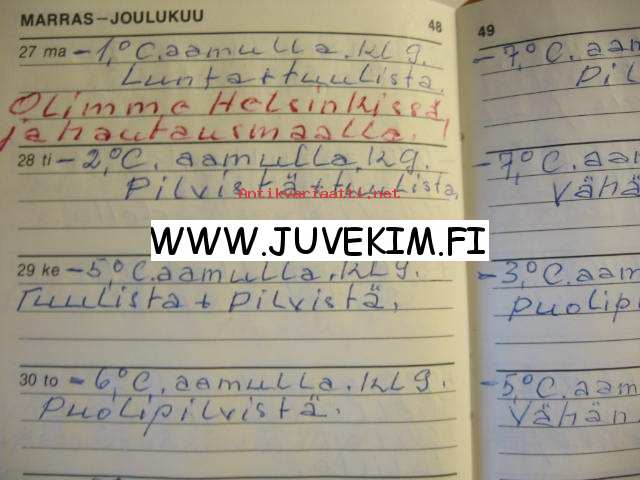 MARRAS–JOULUKUU 48
27 ma –1,° C. aamulla. kl 9.
Lunta + tuulista.
Olimme Helsinkissä
ja hautausmaalla. !
28 ti –2,° C. aamulla. kl 9.
Pilvistä + tuulista.
Antikvariaatti.net
WWW.JUVEKIM.FI
29 ke –5,° C. aamulla. kl 9.
Tuulista + pilvistä.
30 to –6,° C. aamulla. kl 9.
Puolipilvistä.
49
–7,° C. aam
pil
–7,° C. aam
vähä
–3,° C. aam
puolip
–5,° C. aam
vähän